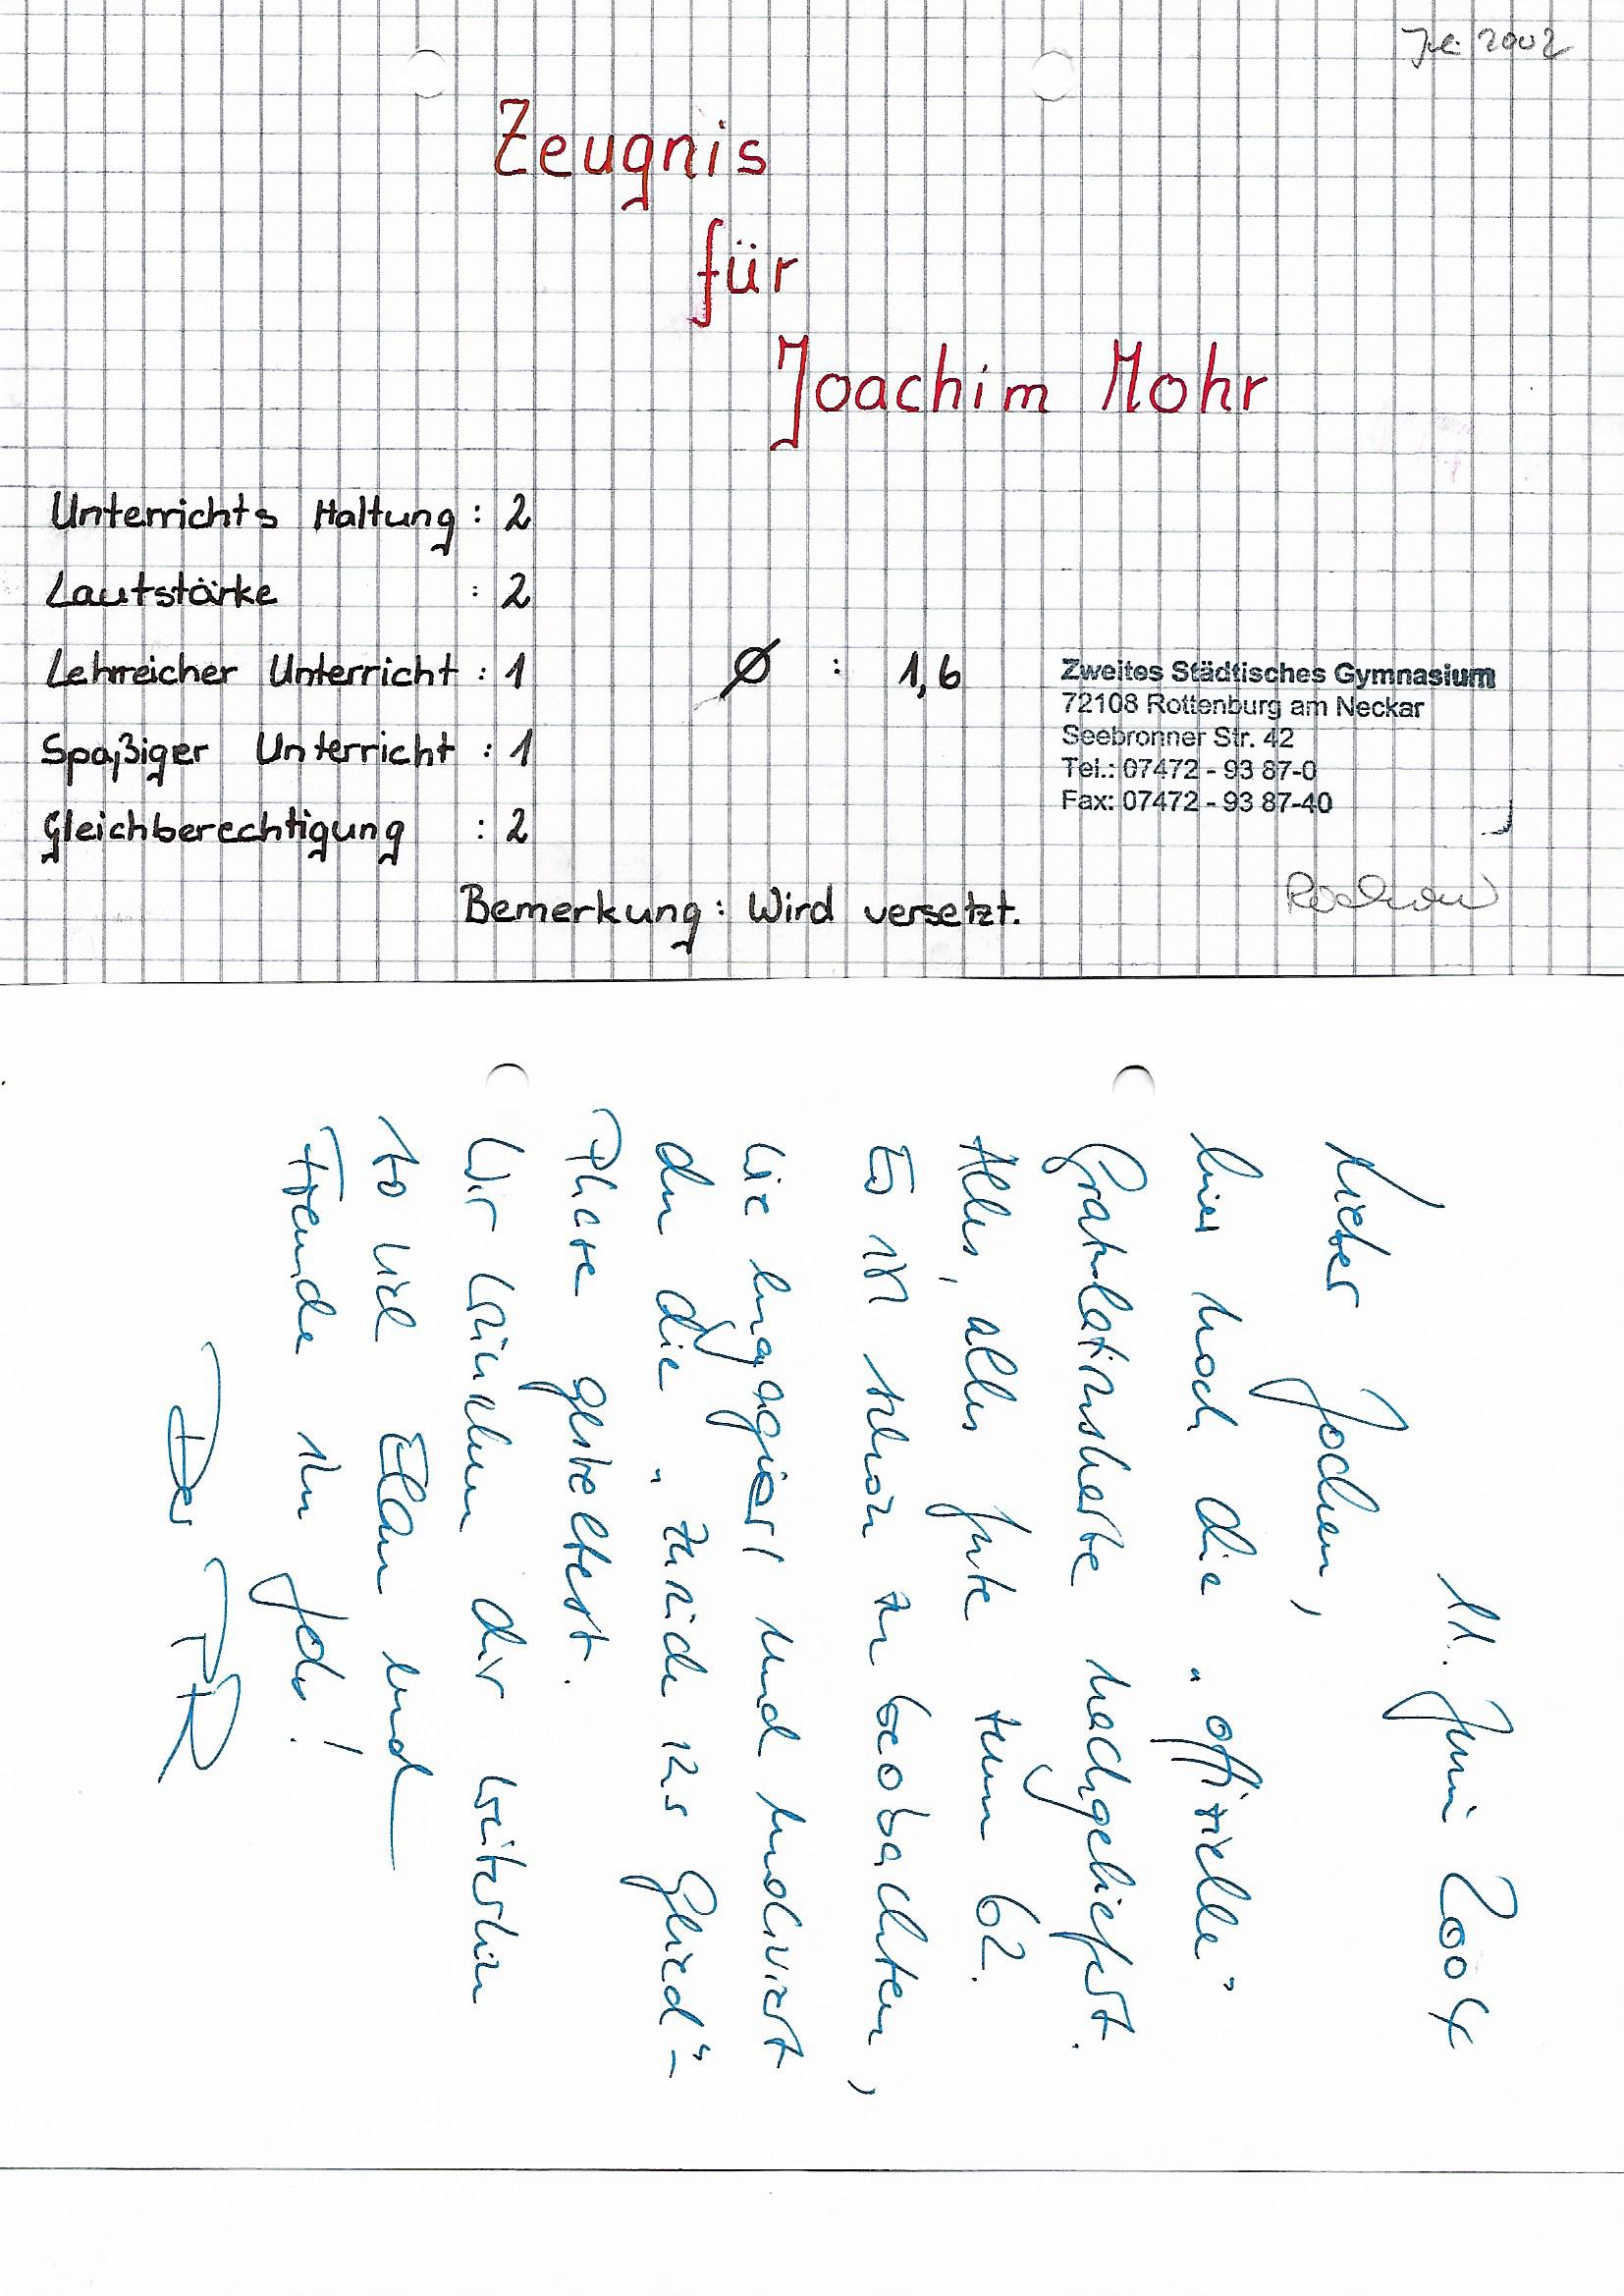 Juli 2002
Zeugnis
für
Joachim Mohr
Unterrichts Haltung: 2
Lautstärke : 2
Lehrreicher Unterricht : 1
Ø : 1,6
Spaßiger Unterricht : 1
Gleichberechtigung : 2
Bemerkung: Wird versetzt.
Zweites Städtisches Gymnasium
72108 Rottenburg am Neckar
Seebronner Str. 42
Tel.: 07472 - 93 87-0
Fax: 07472 - 93 87-40
11. Juni 2004
Lieber Jochen,
hier noch die "offizielle"
Gratulationskarte nachgeliefert.
Alles, alles Gute zum 62.
Es ist schön zu beobachten,
wie engagiert und motiviert
du die "Zurück ins Glied"-
Phase gestaltest.
Wir wünschen dir weiterhin
so viel Elan und
Freude im Job!
Der PR